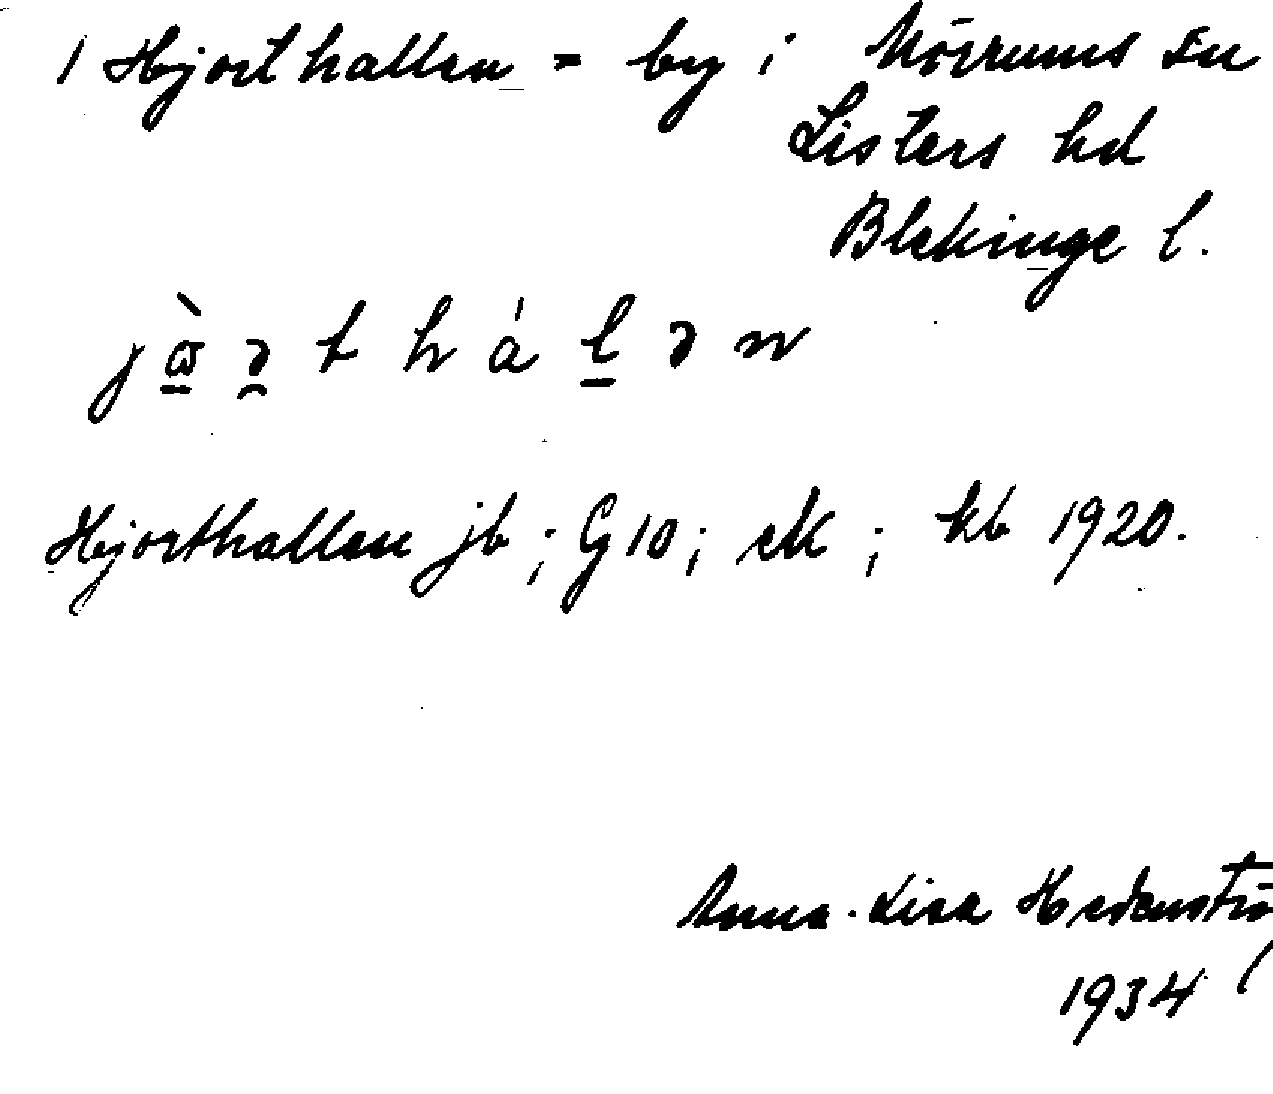 1 Hjorthallen = by i Mörrums sn
Listers hd
Blekinge l.
Hjorthallen jb; G 10; ek; kb 1920.
Anna-Lisa Hedenströ
1934